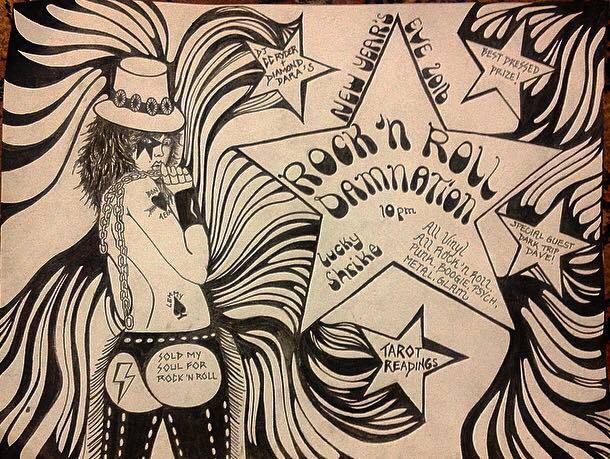 DJ
ED RYDER
DIAMOND
DARA'S
NEW YEAR'S
EVE 2016
BEST DRESSED
PRIZE!
ROCK 'N ROLL
DAMNATION
10 pm
Lucky
Shrike
All Vinyl
All ROCK 'N ROLL
PUNK, BOOGIE, PSYCH,
METAL, GLAM
SPECIAL GUEST
DARK TRIP
DAVE!
TAROT
READINGS
BON
LEMMY
SOLD MY
SOUL FOR
ROCK 'N ROLL